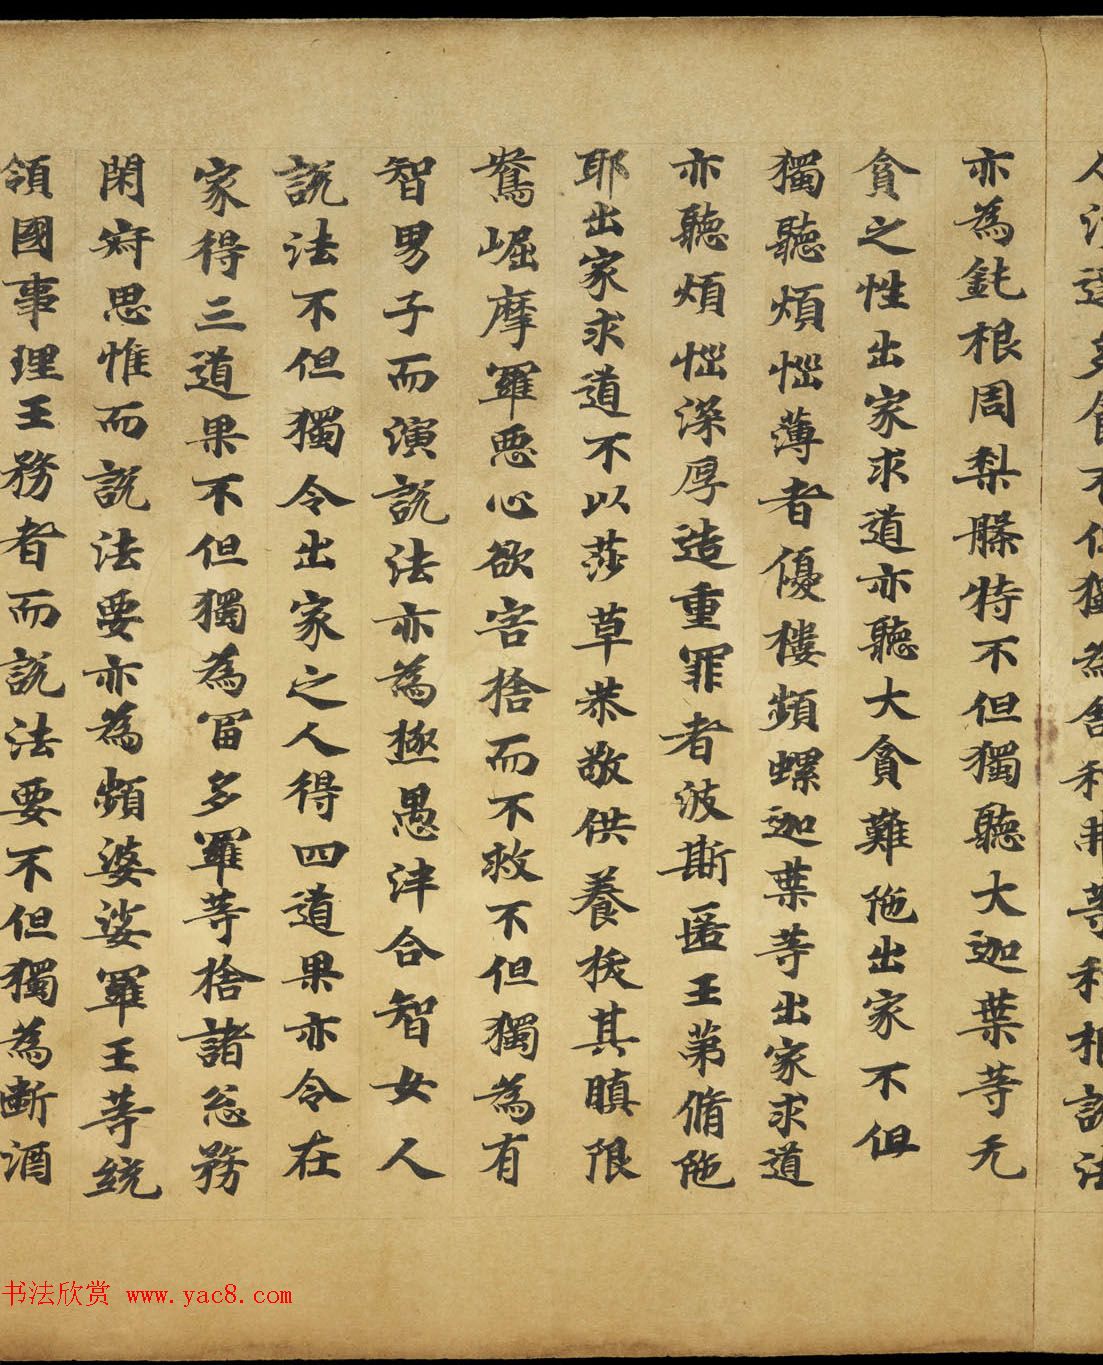 亦為鈍根周梨騄特不但獨聽大迦葉等无
貪之性出家求道亦聽大貪難陁出家不但
獨聽煩惱薄者優樓頻螺迦葉等出家求道
亦聽煩惱深厚造重罪者波斯匿王弟脩陁
耶出家求道不以莎草恭敬供養拔其瞋限
鴦崛摩羅惡心欲害捨而不救不但獨為有
智男子而演說法亦為極愚淬合智女人
說法不但獨令出家之人得四道果亦令在
家得三道果不但獨為冨多羅等捨諸忩務
閑寂思惟而說法要亦為頻婆娑羅王等統
領國事理王務者而說法要不但獨為斷酒
书法欣赏 www.yac8.com